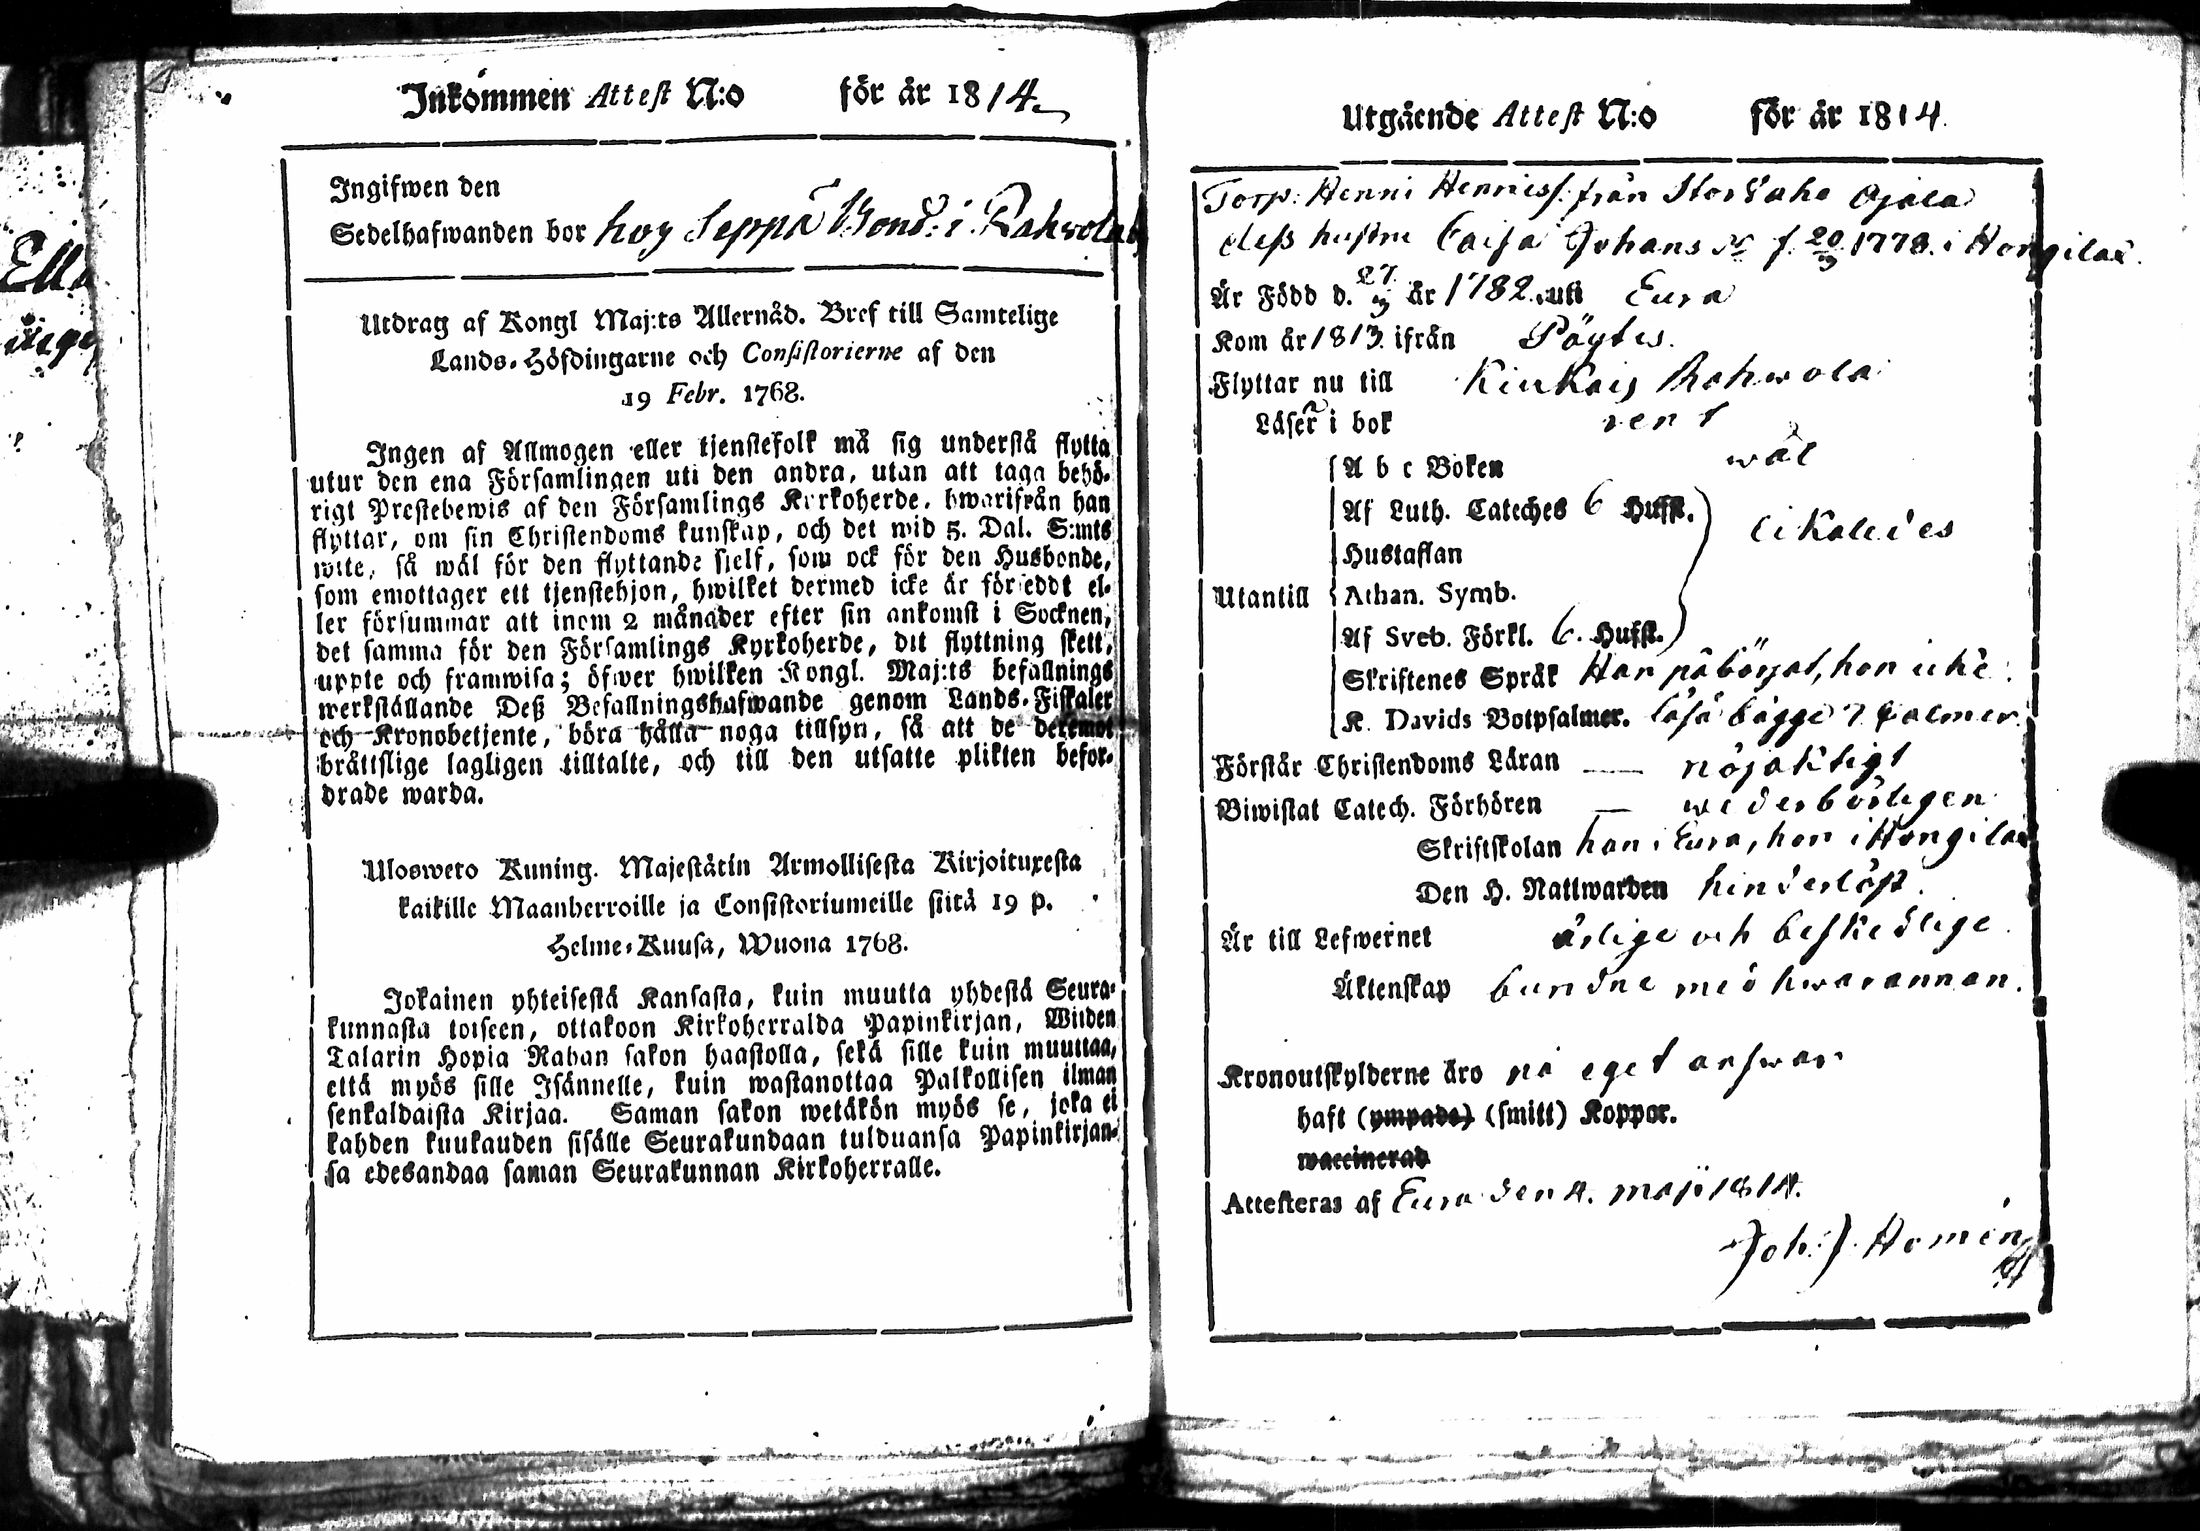 Inkommen Attest N:o för år 1814
Ingifwen den
Sedelhafwanden bor hos Seppä Bond: i Rahwola by
Utdrag af Kongl Maj:ts Allernåd. Bref till Samtelige
Lands-Höfdingarne och Consistorierne af den
19 Febr. 1768.
Ingen af Allmogen eller tjenstefolk må sig understå flytta
utur den ena Församlingen uti den andra, utan att taga behö-
rigt Prestebewis af den Församlings Kyrkoherde, hwarifrån han
flyttar, om sin Christendoms kunskap, och det wid 5. Dal. S:mts
wite, så wäl för den flyttande sjelf, som ock för den Husbonde,
som emottager ett tjenstehjon, hwilket dermed icke är förseddt el-
ler försummar att inom 2 månader efter sin ankomst i Socknen,
det samma för den Församlings Kyrkoherde, dit flyttning skett,
uppte och framwisa; öfwer hwilken Kongl. Maj:ts befallnings
werkställande Deß Befallningshafwande genom Lands-Fiskaler
och Kronobetjente, böra hålla noga tillsyn, så att de deremot
bråttslige lagligen tilltalte, och till den utsatte plikten befor-
drade warda.
Ulosweto Kuning. Majestätin Armollisesta Kirjoituxesta
kaikille Maanherroille ja Consistoriumeille siitä 19 p.
Helme-Kuusa, Wuona 1768.
Jokainen yhteisestä Kansasta, kuin muutta yhdestä Seura-
kunnasta toiseen, ottakoon Kirkoherralda Papinkirjan, Wiiden
Talarin Hopia Rahan sakon haastolla, sekä sille kuin muuttaa,
että myös sille Isännelle, kuin wastanottaa Palkollisen ilman
senkaldaista Kirjaa. Saman sakon wetäkön myös se, joka ei
kahden kuukauden sisälle Seurakundaan tulduansa Papinkirjan-
sa edesandaa saman Seurakunnan Kirkoherralle.
Utgående Attest N:o för år 1814.
Torp: Henric Henricss. från Storlaha Ojala
deß hustru Caisa Johans dr f. 20/3 1778. i Hongilax.
Är Född d. 27/3 år 1782. uti Eura
Kom år 1813. ifrån Pöytis.
Flyttar nu till Kiukais Rahwola
Läser i bok rent
A b c Boken wäl
Af Luth. Cateches 6 Hufst.
Hustaflan likaledes
Utantill Athan. Symb.
Af Sveb. Förkl. 6. Hufst.
Skriftenes Språk Han påbörjat, hon icke
K. Davids Botpsalmer. läsa bägge 7 Psalmer.
Förstår Christendoms Läran — nöjaktigt
Biwistat Catech. Förhören — wederbörligen
Skriftskolan han i Eura, hon i Hongilax
Den H. Nattwarden hinderlöst.
Är till Lefwernet ärlige och beskedlige.
Äktenskap bundne med hwarannan.
Kronoutskylderne äro på eget answar
haft (ympade) (smitt) Koppor.
waccinerad
Attesteras af Eura den 4. maji 1814.
Joh: J. Homén